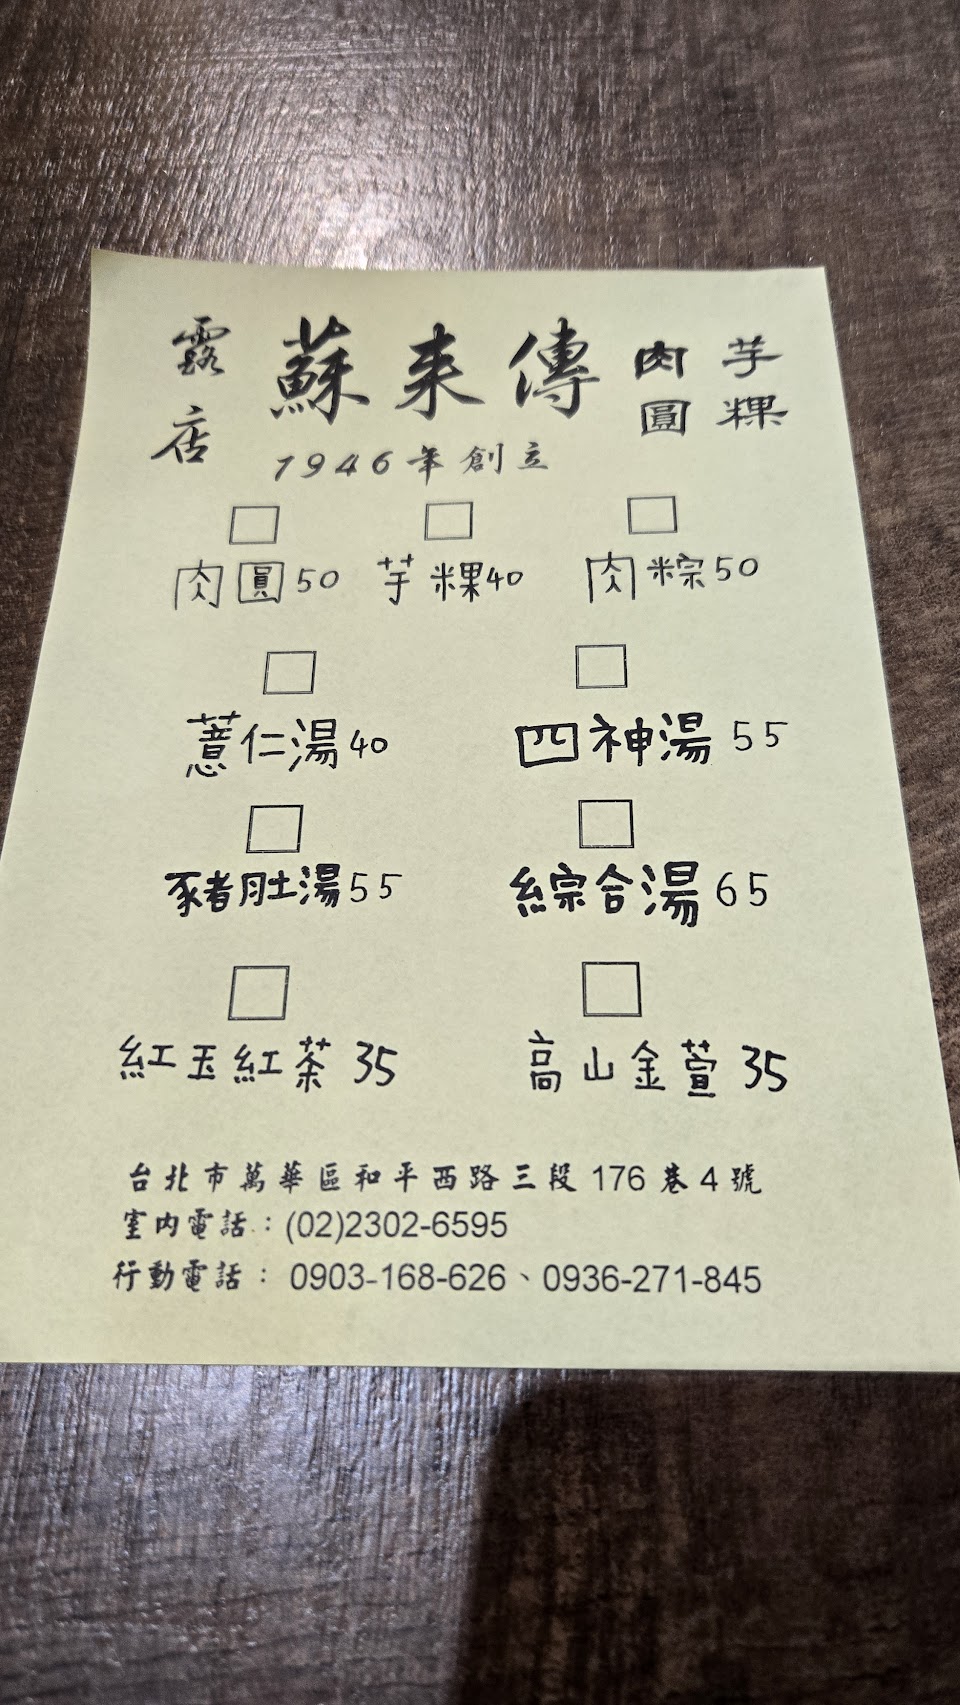 露店 蘇来傳 肉圓 芋粿
1946年創立
肉圓50 芋粿40 肉粽50
薏仁湯40 四神湯55
豬肚湯55 綜合湯65
紅玉紅茶35 高山金萱35
台北市萬華區和平西路三段176巷4號
室內電話：(02)2302-6595
行動電話：0903-168-626、0936-271-845